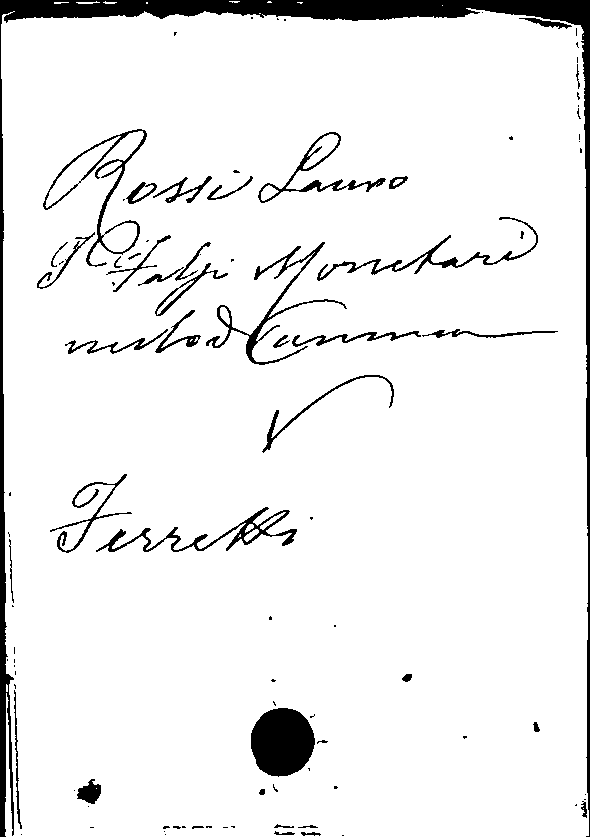 Rossi Lauro
I Falsi Monetari
melod
V
Ferretti